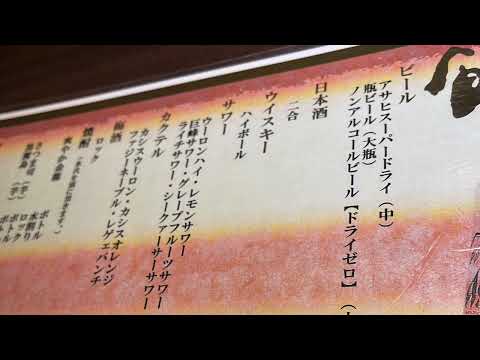 ビール
アサヒスーパードライ(中)
瓶ビール(大瓶)
ノンアルコールビール【ドライゼロ】
日本酒
二合
ウイスキー
ハイボール
サワー
ウーロンハイ・レモンサワー
巨峰サワー・グレープフルーツサワー
ライチサワー・シークァーサーサワー
カクテル
カシスウーロン・カシスオレンジ
ファジーネーブル レゲエパンチ
梅酒
ロック
焼酎
ボトル
水割り
ロック
ボトル